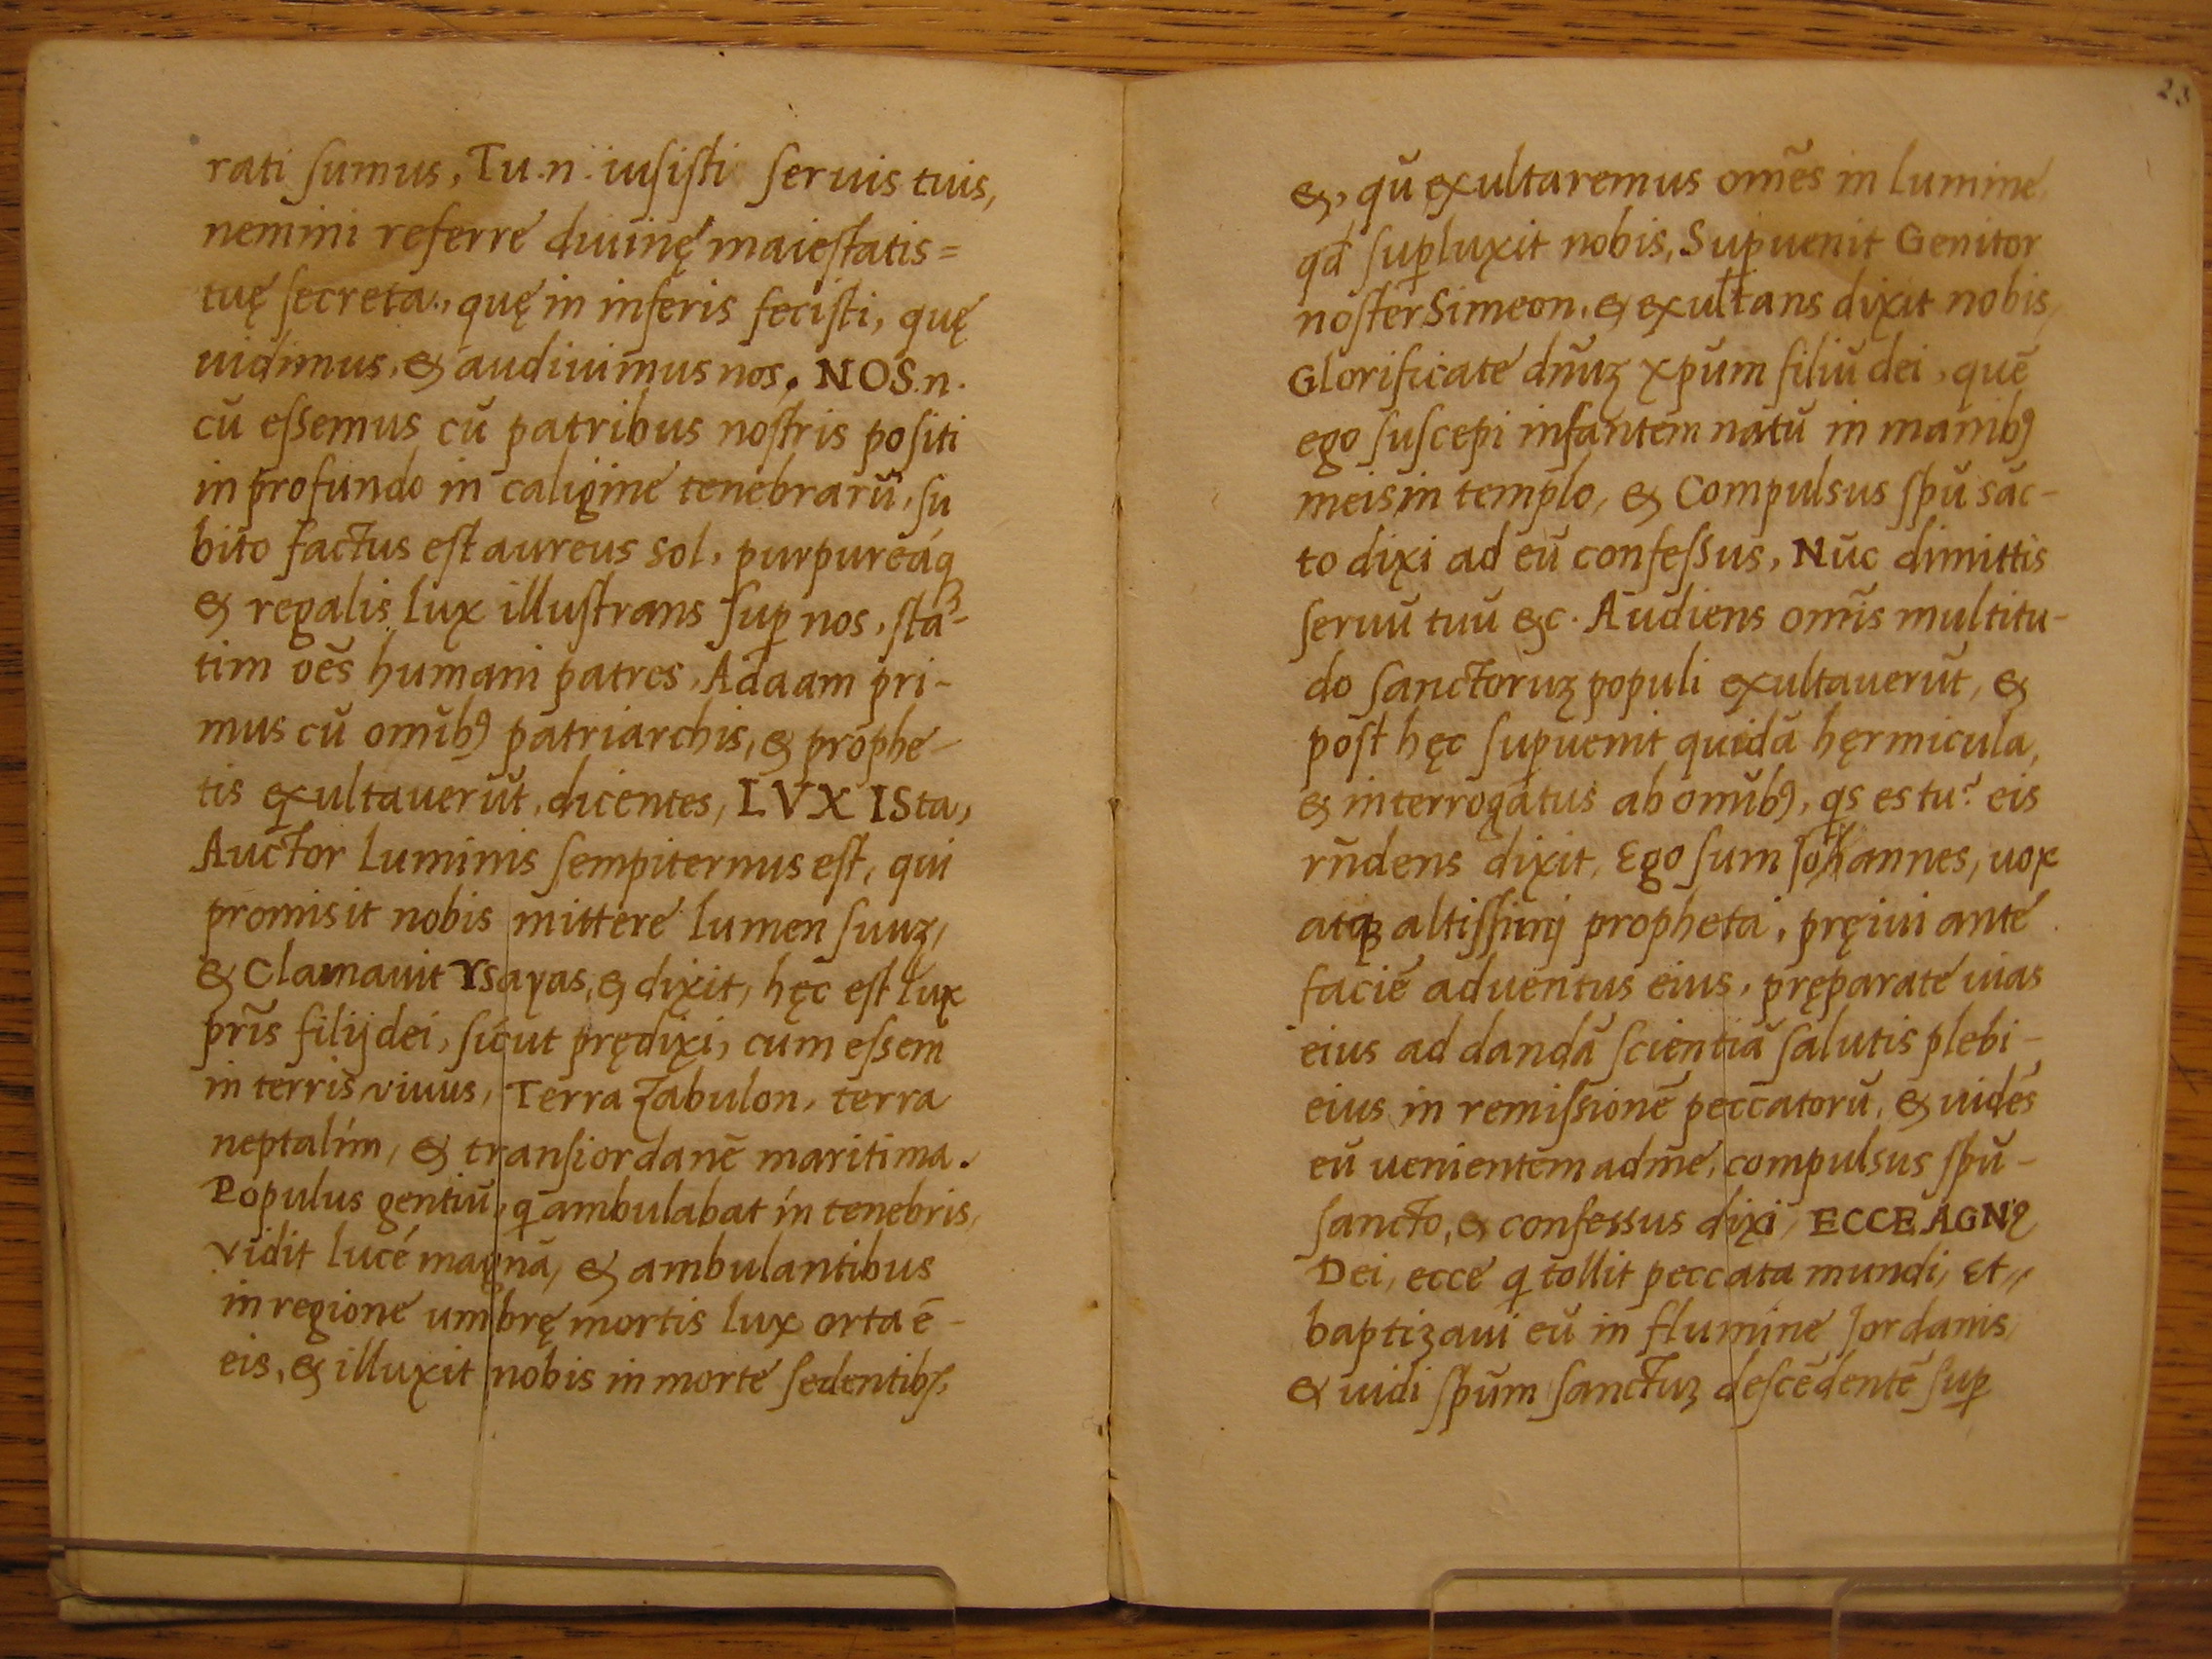 rati sumus, Tu .n. iusisti seruis tuis,
nemini referre diuinę maiestatis=
tuę secreta., quę in inferis fecisti, quę
uidimus, & audiuimus nos. NOS .n.
cū essemus cū patribus nostris positi
in profundo in caligine tenebrarū, su
bito factus est aureus sol, purpureáq3
& regalis lux illustrans sup̱ nos, sta-
tim oēs humani patres, Adaam pri-
mus cū omībꝰ patriarchis, & prophe-
tis exultauerūt, dicentes, LVX ISta,
Auctor luminis sempiternus est, qui
promisit nobis mittere lumen suuꝫ,
& Clamauit Ysayas, & dixit, hęc est lux
prīs filij dei, sicut prędixi, cum essem
in terris viuus, Terra Zabulon, terra
neptalím, & transiordanē maritima.
Populus gentiū, q ambulabat ín tenebris,
vidit lucé magnā, & ambulantibus
in regione umbrę mortis lux orta ē-
eis, & illuxit nobis in morte sedentibꝫ,
23
&, qū exultaremus omēs in lumine,
qd sup̱luxit nobis, Sup̱uenit Genitor
noster Simeon, & exultans dixit nobis,
Glorificate dn̄uꝫ xp̄um filiū dei, quē
ego suscepi infantem natū in manibꝰ
meis in templo, & Compulsus sp̄u sac-
to dixi ad eū confessus, Nūc dimittis
seruū tuū &c. Audiens omīs multitu-
do sanctoruꝫ populi exultauerūt, &
post hęc sup̱uenit quidā hęrmicula,
& interrogatus ab omībꝰ, qs es tu? eis
rn̄dens dixit, Ego sum Johannes, uox
atqꝫ altissimj propheta, pręiui ante
faciē aduentus eius, pręparate uias
eius ad dandā scientiā salutis plebi-
eius in remissionē peccatorū, & uidēs
eū uenientem ad me, compulsus sp̄u-
sancto, & confessus dixi, ECCE AGNꝰ
Dei, ecce q tollit peccata mundi, Et,,
baptizaui eū in flumine Jordanis,
& uidi sp̄um sanctuꝫ descēdentē sup̱